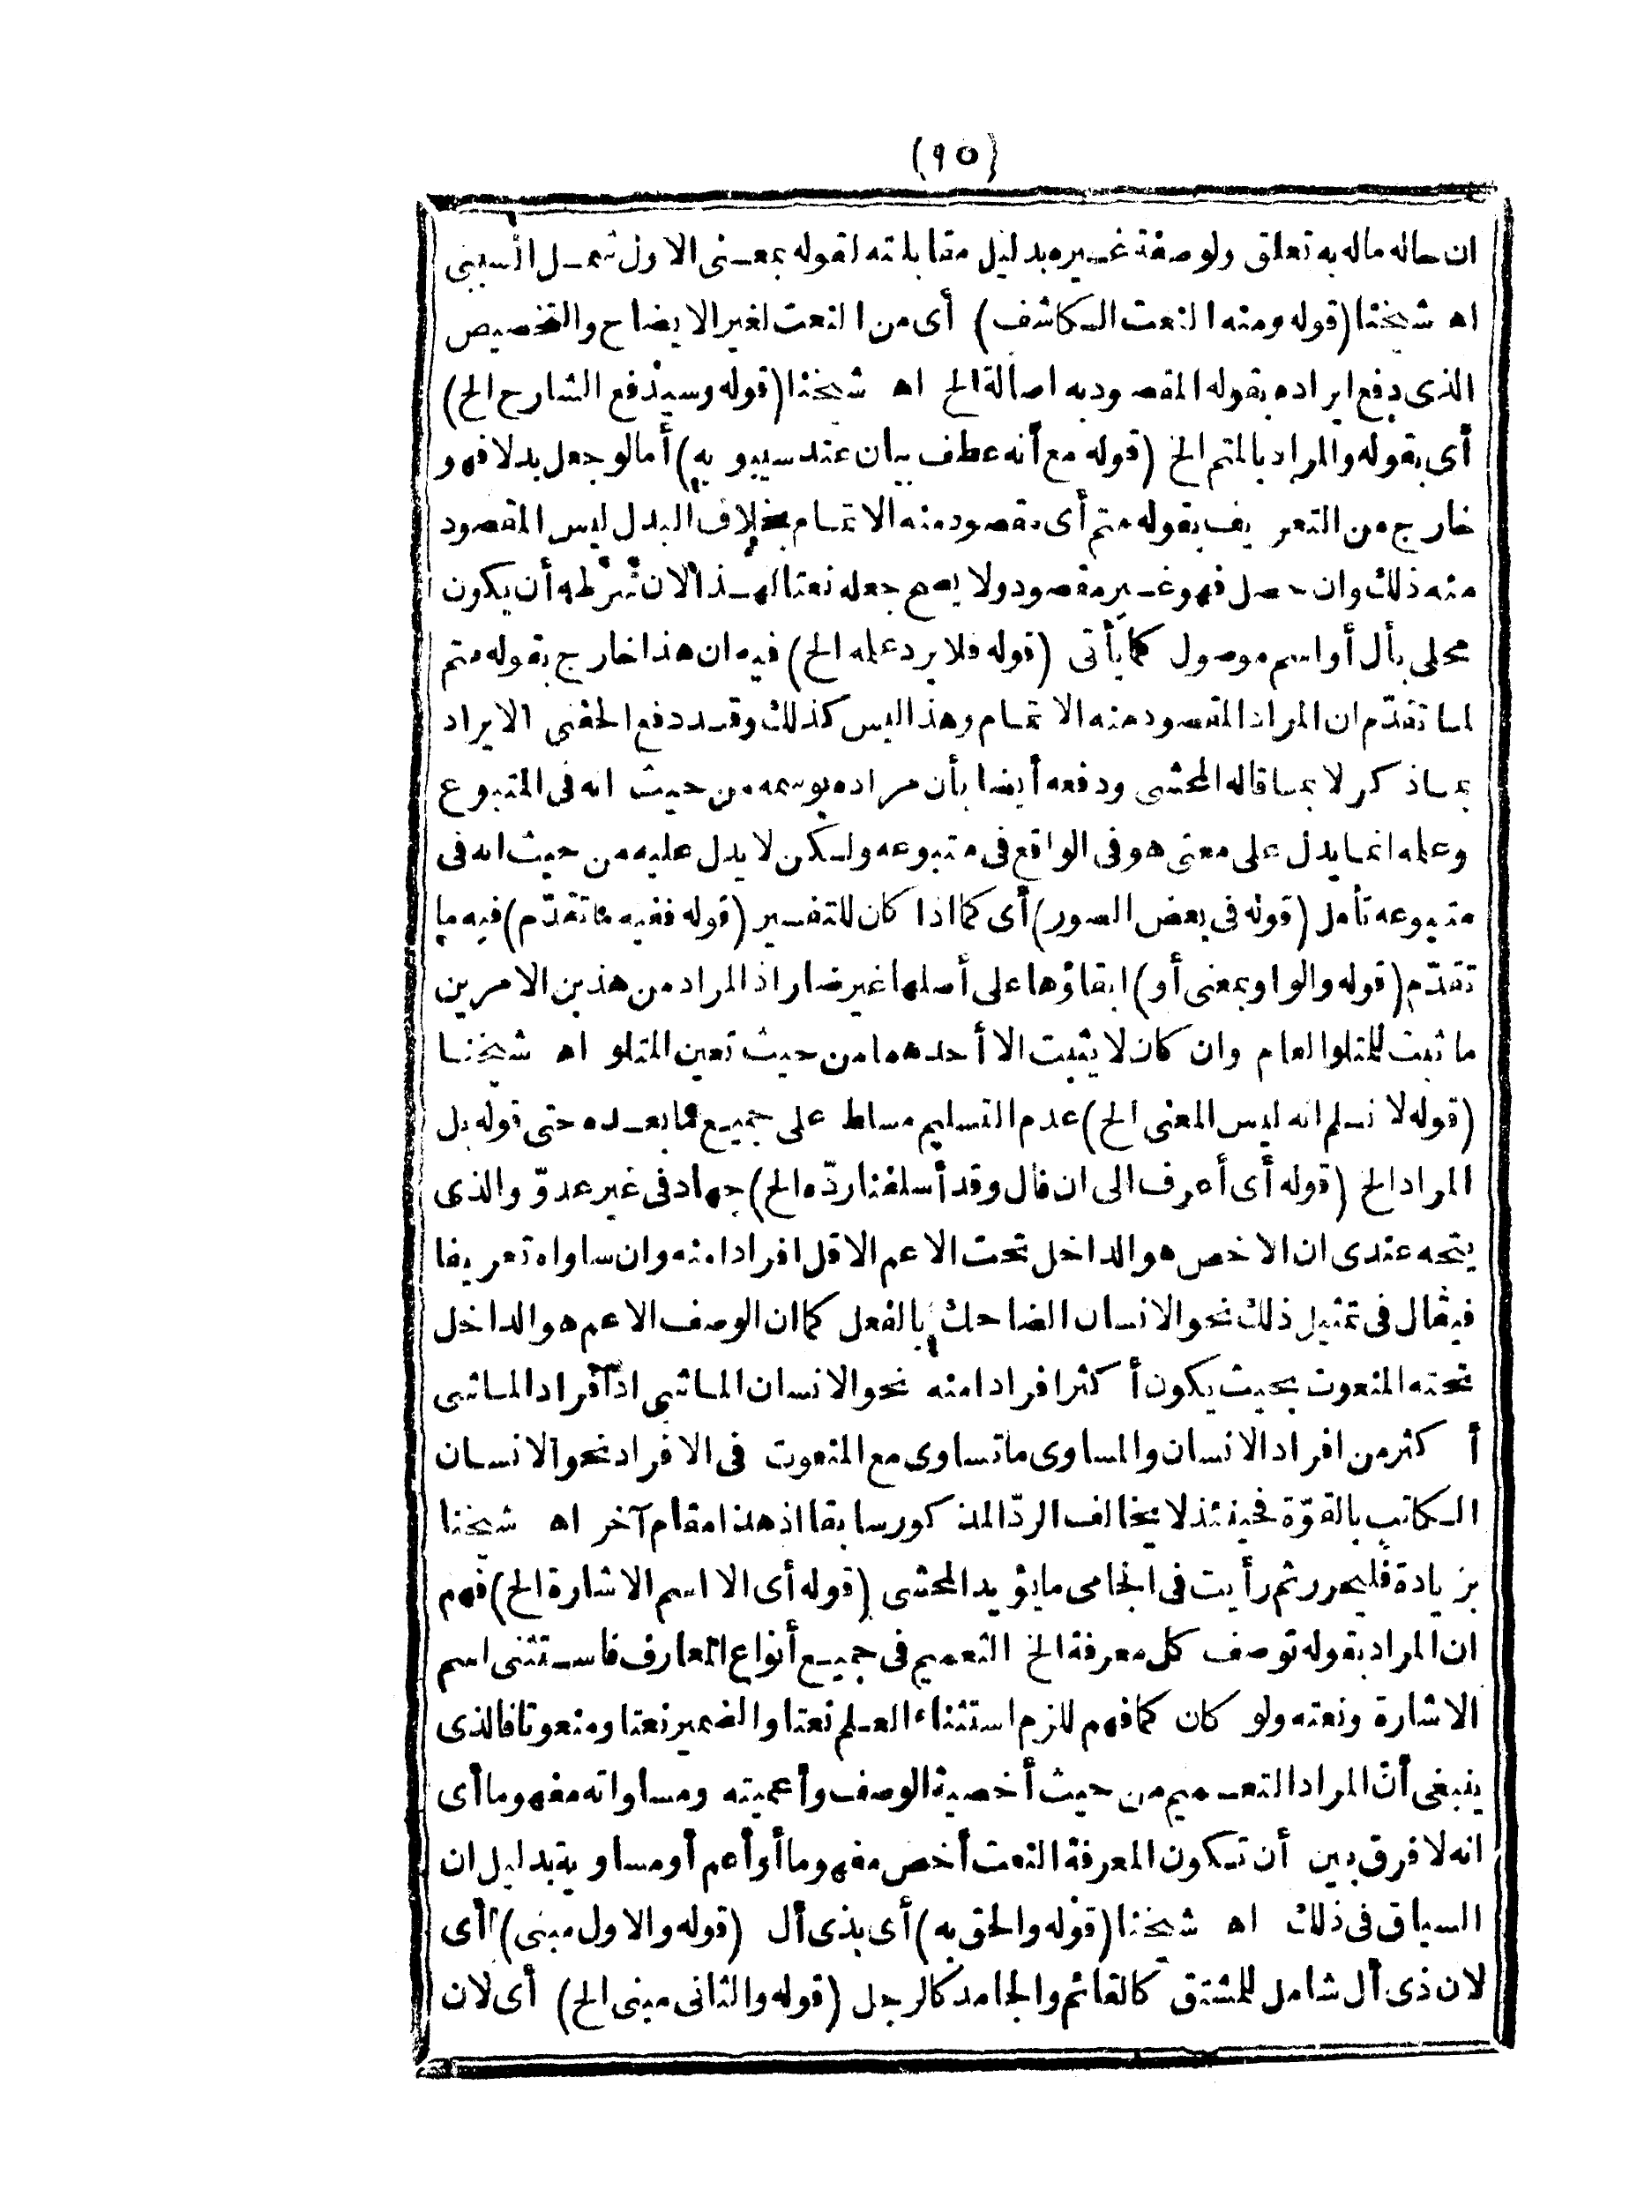 (٩٥)
ان حاله ماله به تعلق ولو صفة غيره بدليل مقابلته لقوله بمعنى الاول شمل السببى
اه شيخنا (قوله ومنه النعت الكاشف) أى من النعت لغير الايضاح والتخصيص
الذى دفع ايراده بقوله المقصود به اصالة الخ اه شيخنا (قوله وسيدفع الشارح الخ)
أى بقوله والمراد بالمتم الخ (قوله مع أنه عطف بيان عند سيبويه) أما لو جعل بدلا فهو
خارج من التعريف بقوله متم أى مقصود منه الاتمام بخلاف البدل ليس المقصود
منه ذلك وان حصل فهو غير مقصود ولا يصح جعله نعتا لهذا لان شرطه أن يكون
محلى بأل أو اسم موصول كما يأتى (قوله فلا يرد عمله الخ) فيه ان هذا خارج بقوله متم
لما تقدّم ان المراد المقصود منه الاتمام وهذا ليس كذلك وقد دفع الحفنى الايراد
بما ذكر لا بما قاله المحشى ودفعه أيضا بأن مراده بوسمه من حيث انه فى المتبوع
وعلمه انما يدل على معنى هو فى الواقع فى متبوعه ولكن لا يدل عليه من حيث انه فى
متبوعه تأمل (قوله فى بعض الصور) أى كما اذا كان للتفسير (قوله ففيه ما تقدّم) فيه ما
تقدّم (قوله والواو بمعنى أو) ابقاؤها على أصلها غير ضار اذ المراد من هذين الامرين
ما ثبت للمتلو العام وان كان لا يثبت الا أحدهما من حيث تعين المتلو اه شيخنا
(قوله لا نسلم انه ليس المعنى الخ) عدم التسليم مسلط على جميع ما بعده حتى قوله بل
المراد الخ (قوله أى أعرف الى ان قال وقد أسلفنا ردّه الخ) جهاد فى غير عدوّ والذى
يتجه عندى ان الاخص هو الداخل تحت الاعم الاقل افرادا منه وان ساواه تعريفا
فيقال فى تمثيل ذلك نحو الانسان الضاحك بالفعل كما ان الوصف الاعم هو الداخل
تحته المنعوت بحيث يكون أكثر افرادا منه نحو الانسان الماشى اذ أفراد الماشى
أكثر من افراد الانسان والمساوى ما تساوى مع المنعوت فى الافراد نحو الانسان
الكاتب بالقوّة فحينئذ لا يخالف الردّ المذكور سابقا اذ هذا مقام آخر اه شيخنا
بزيادة فليحرر ثم رأيت فى الجامى ما يؤيد المحشى (قوله أى الا اسم الاشارة الخ) فهم
ان المراد بقوله توصف كل معرفة الخ التعميم فى جميع أنواع المعارف فاستثنى اسم
الاشارة ونعته ولو كان كما فهم للزم استثناء العلم نعتا والضمير نعتا ومنعوتا فالذى
ينبغى أنّ المراد التعميم من حيث أخصية الوصف وأعميته ومساواته مفهوما أى
انه لا فرق بين أن تكون المعرفة النعت أخص مفهوما أو أعم أو مساوية بدليل ان
السياق فى ذلك اه شيخنا (قوله والحق به) أى بذى أل (قوله والاول مبنى) أى
لان ذى أل شامل للمشتق كالقائم والجامد كالرجل (قوله والثانى مبنى الخ) أى لان